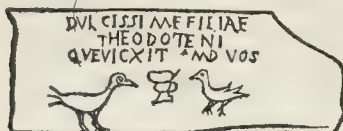 DULCISSIMEFILIAE
THEODOTENI
QVEVICXIT MD VOS